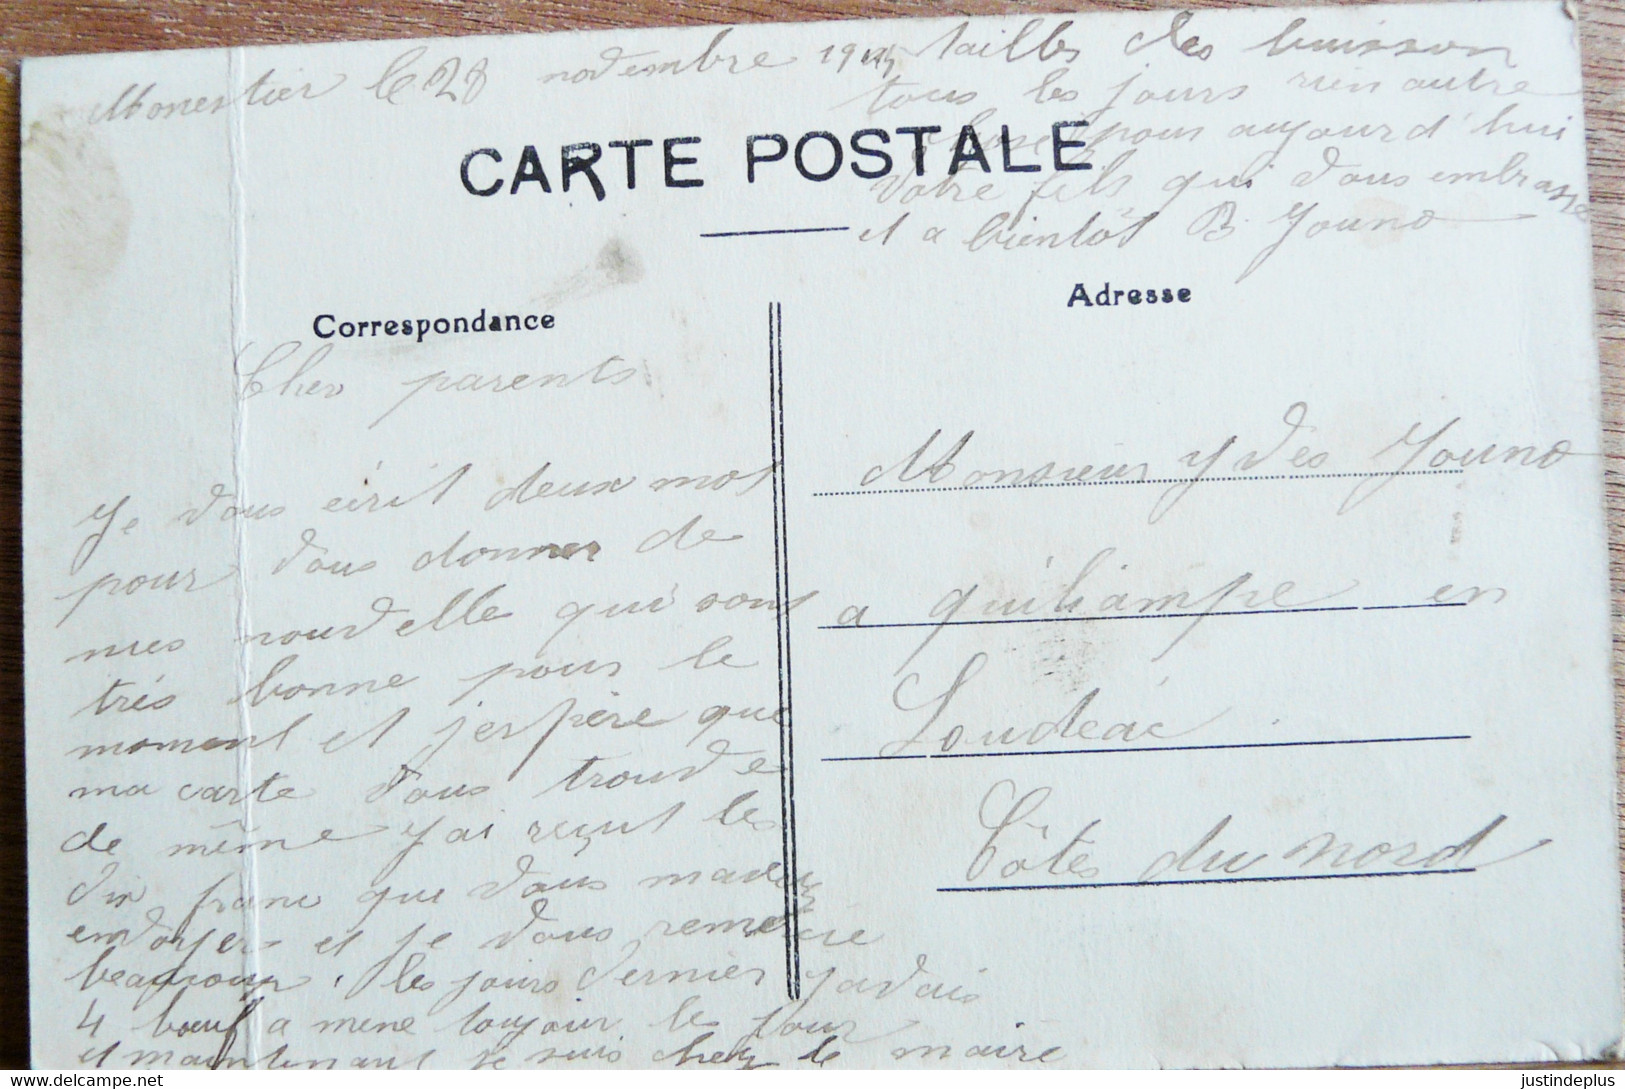 Monestier le 28 novembre 1915
CARTE POSTALE
Correspondance
Cher parents
Je vous écrit deux mot
pour vous donner de
mes nouvelle qui sont
trés bonne pour le
moment et j'espère que
ma carte vous trouve
de même j'ai reçut les
dix franc que vous mavez
envoyer et je vous remercie
beaucoup. les jours dernier javais
4 bœuf a mené toujour les jour
et maintenant je suis chez le maire
tailler des buisson
tous les jours rien autre
chose pour aujourd'hui
votre fils qui vous embrasse
et a bientôt B. Jouno
Adresse
Monsieur Yves Jouno
a quiliampe en
Loudéac
Côtes du nord
justindeplus